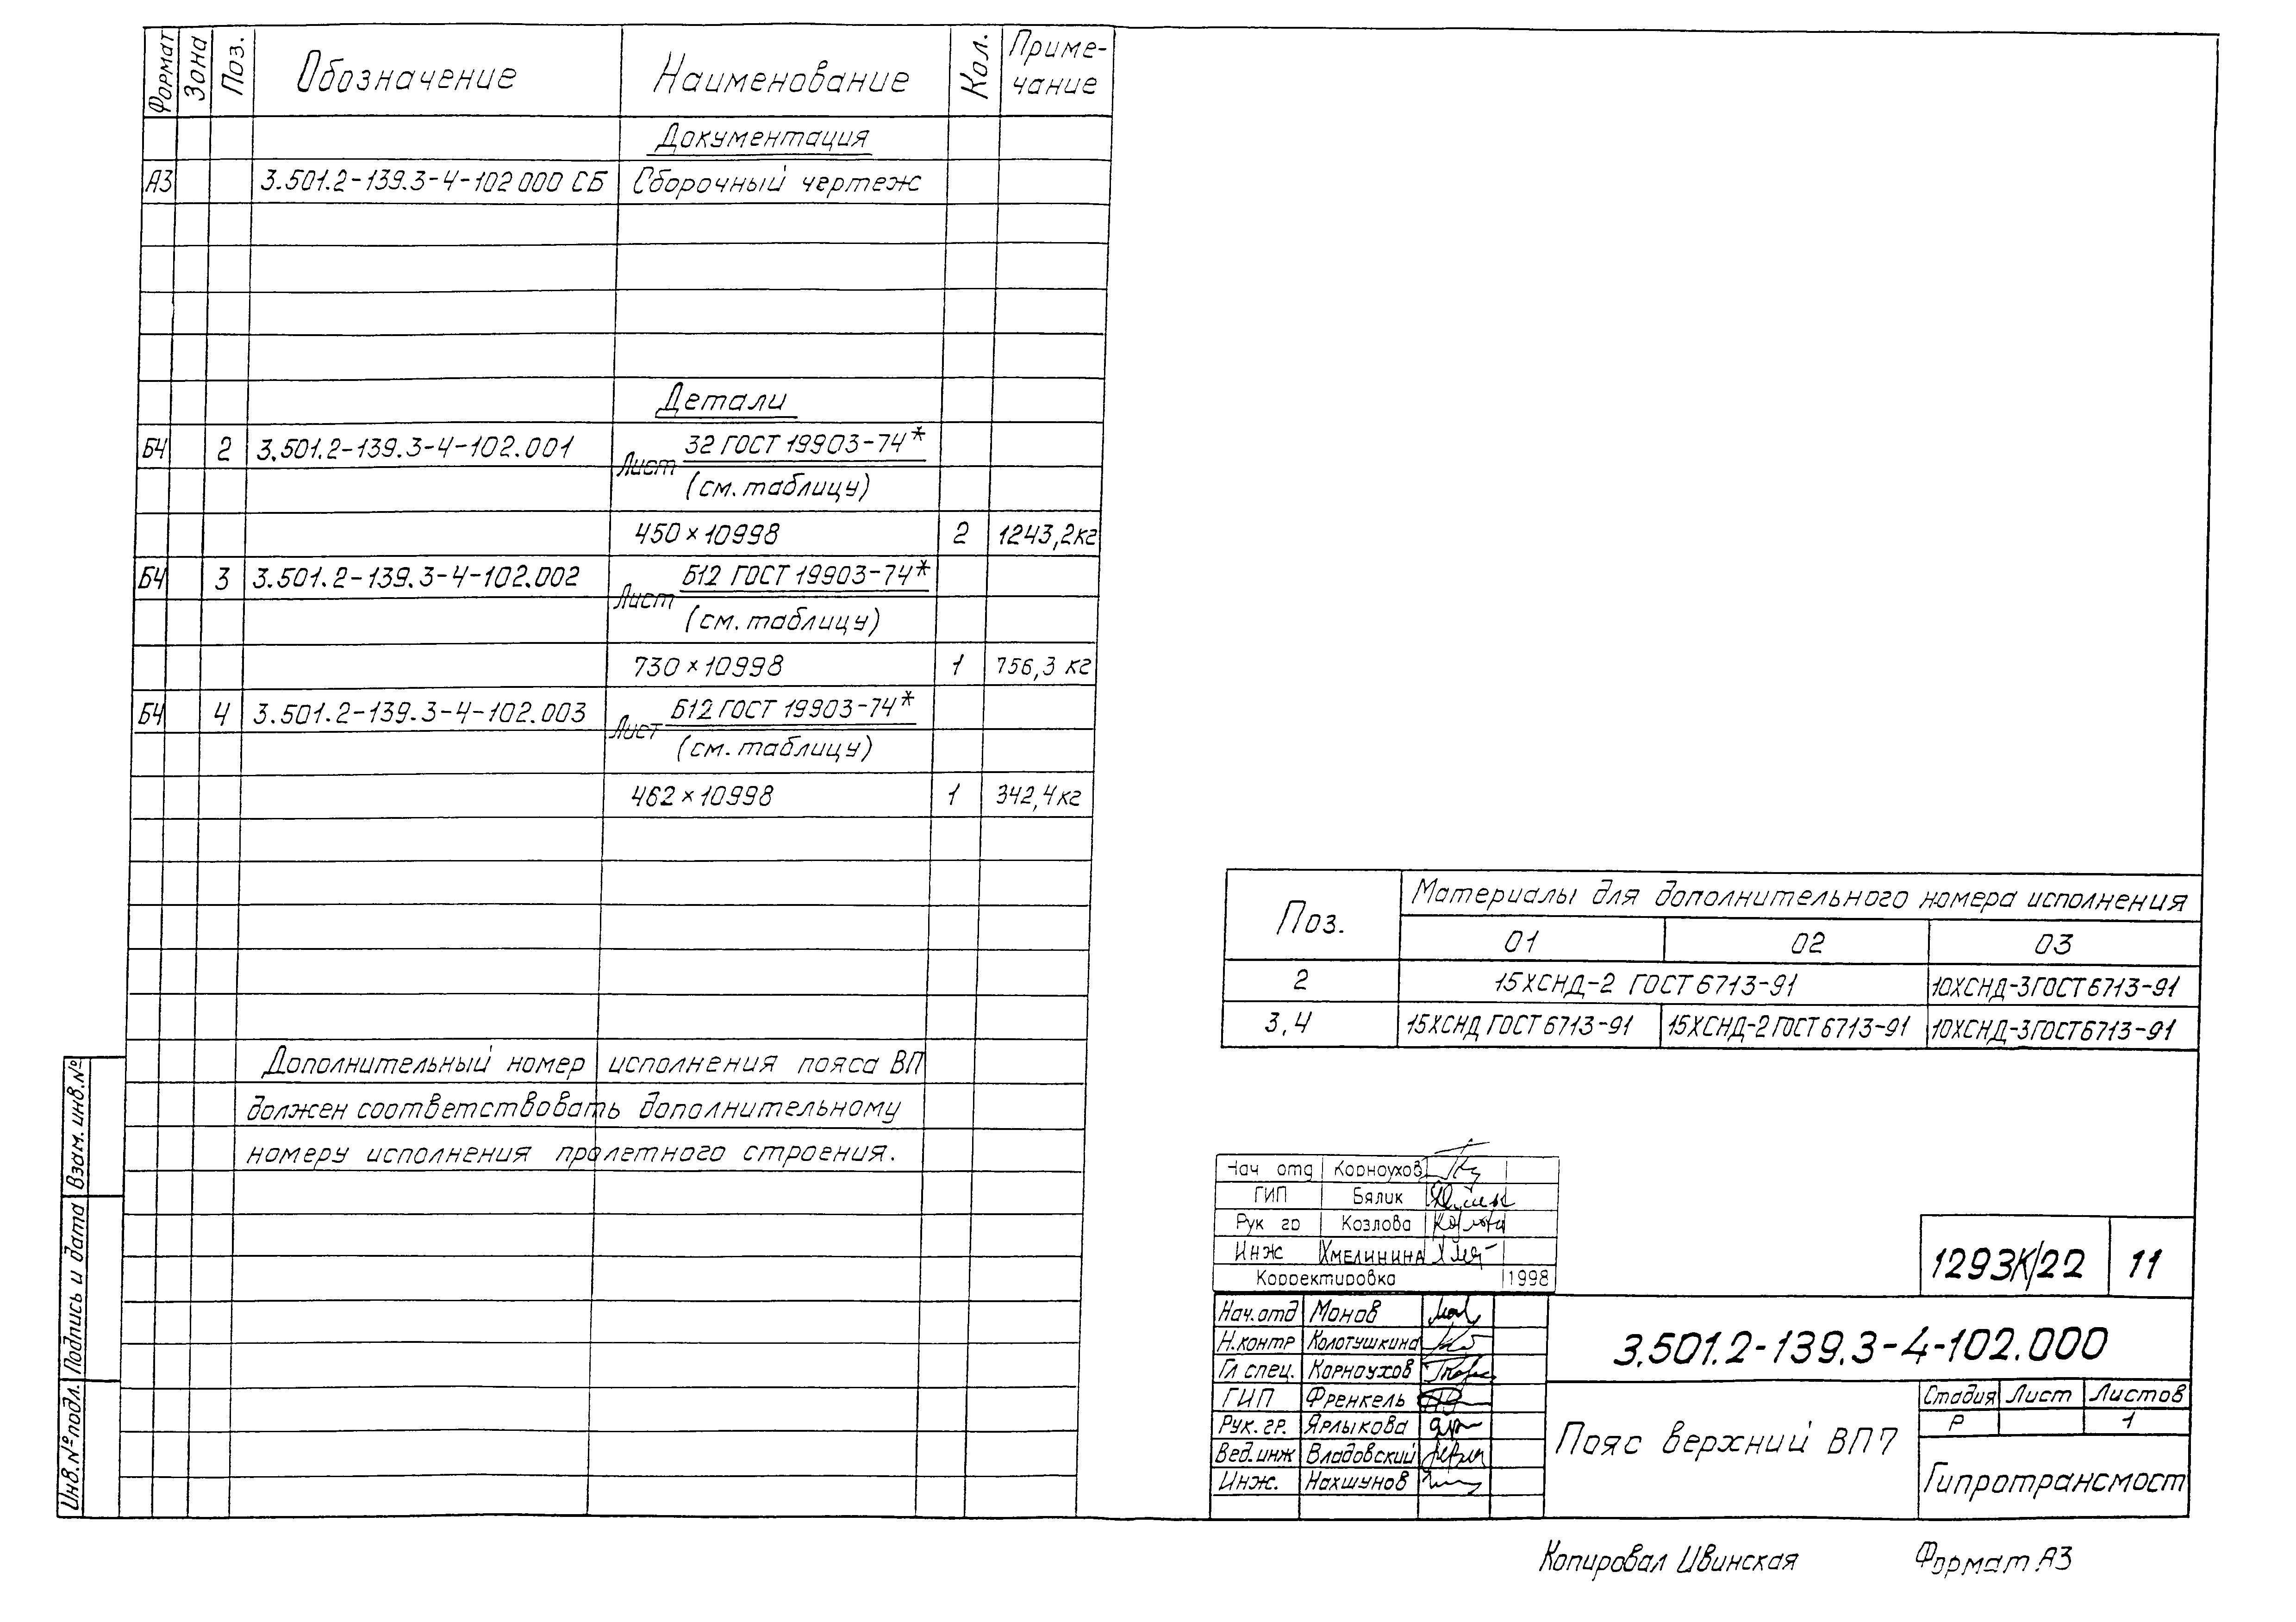 Формат Зона Поз. Обозначение Наименование Кол. Приме-
чание
Документация
А3 3.501.2-139.3-4-102 000 СБ Сборочный чертеж
Детали
БЧ 2 3.501.2-139.3-4-102.001 Лист 32 ГОСТ 19903-74*
(см. таблицу)
450×10998 2 1243,2кг
БЧ 3 3.501.2-139.3-4-102.002 Лист Б12 ГОСТ 19903-74*
(см. таблицу)
730×10998 1 756,3 кг
БЧ 4 3.501.2-139.3-4-102.003 Лист Б12 ГОСТ 19903-74*
(см. таблицу)
462×10998 1 342,4кг
Дополнительный номер исполнения пояса ВП
должен соответствовать дополнительному
номеру исполнения пролетного строения.
Поз. Материалы для дополнительного номера исполнения
01 02 03
2 15ХСНД-2 ГОСТ 6713-91 10ХСНД-3ГОСТ6713-91
3,4 15ХСНД ГОСТ6713-91 15ХСНД-2ГОСТ6713-91 10ХСНД-3ГОСТ6713-91
Взам. инв.№
Подпись и дата
Инв.№подл.
Нач отд Корноухов
ГИП Бялик
Рук гр Козлова
Инж Хмелинина
Корректировка 1998
1293К/22 11
Нач.отд Монов
Н.контр Колотушкина
Гл спец. Корноухов
ГИП Френкель
Рук. гр. Ярлыкова
Вед.инж Владовский
Инж. Нахшунов
3.501.2-139.3-4-102.000
Пояс верхний ВП7
Стадия Лист Листов
Р 1
Гипротрансмост
Копировал Ивинская Формат А3